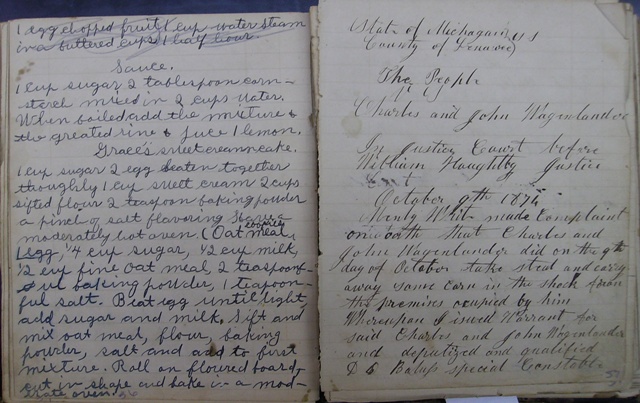 1 egg chopped fruit 1 cup water steam
in a buttered cups 1 half hour.
Sauce.
1 cup sugar 2 tablespoon corn-
starch mixed in 2 cups water.
When boiled add the mixture &
the greated rine & juce 1 lemon.
Grace's sweet cream cake.
1 cup sugar 2 egg beaten together
throughly 1 cup sweet cream 2 cups
sifted flour 2 teaspoon baking powder
a pinch of salt flavoring
moderately hot oven. (Oat meal
1 egg, 1/4 cup sugar, 1/2 cup milk,
1/2 cup fine Oat meal, 2 teaspoon-
ful baking powder, 1 teaspoon-
ful salt. Beat egg until light,
add sugar and milk. Sift and
mix oat meal, flour, baking
powder, salt and add to first
mixture. Roll on floured board,
cut in shape and bake in a mod-
erate oven.
State of Michagan SS
County of Lenawee
The People
vs
Charles and John Wagenlander
In Justice Court before
William Haughtby Justice
October 9th 1874
White made Complaint
on oath that Charles and
John Wagenlander did on the 9th
day of October take steal and carry
away some corn in the shock from
the premises ocupied by him
Whereupon I issued Warrant for
said Charles and John Wagenlander
and deputized and qualified
special Constable